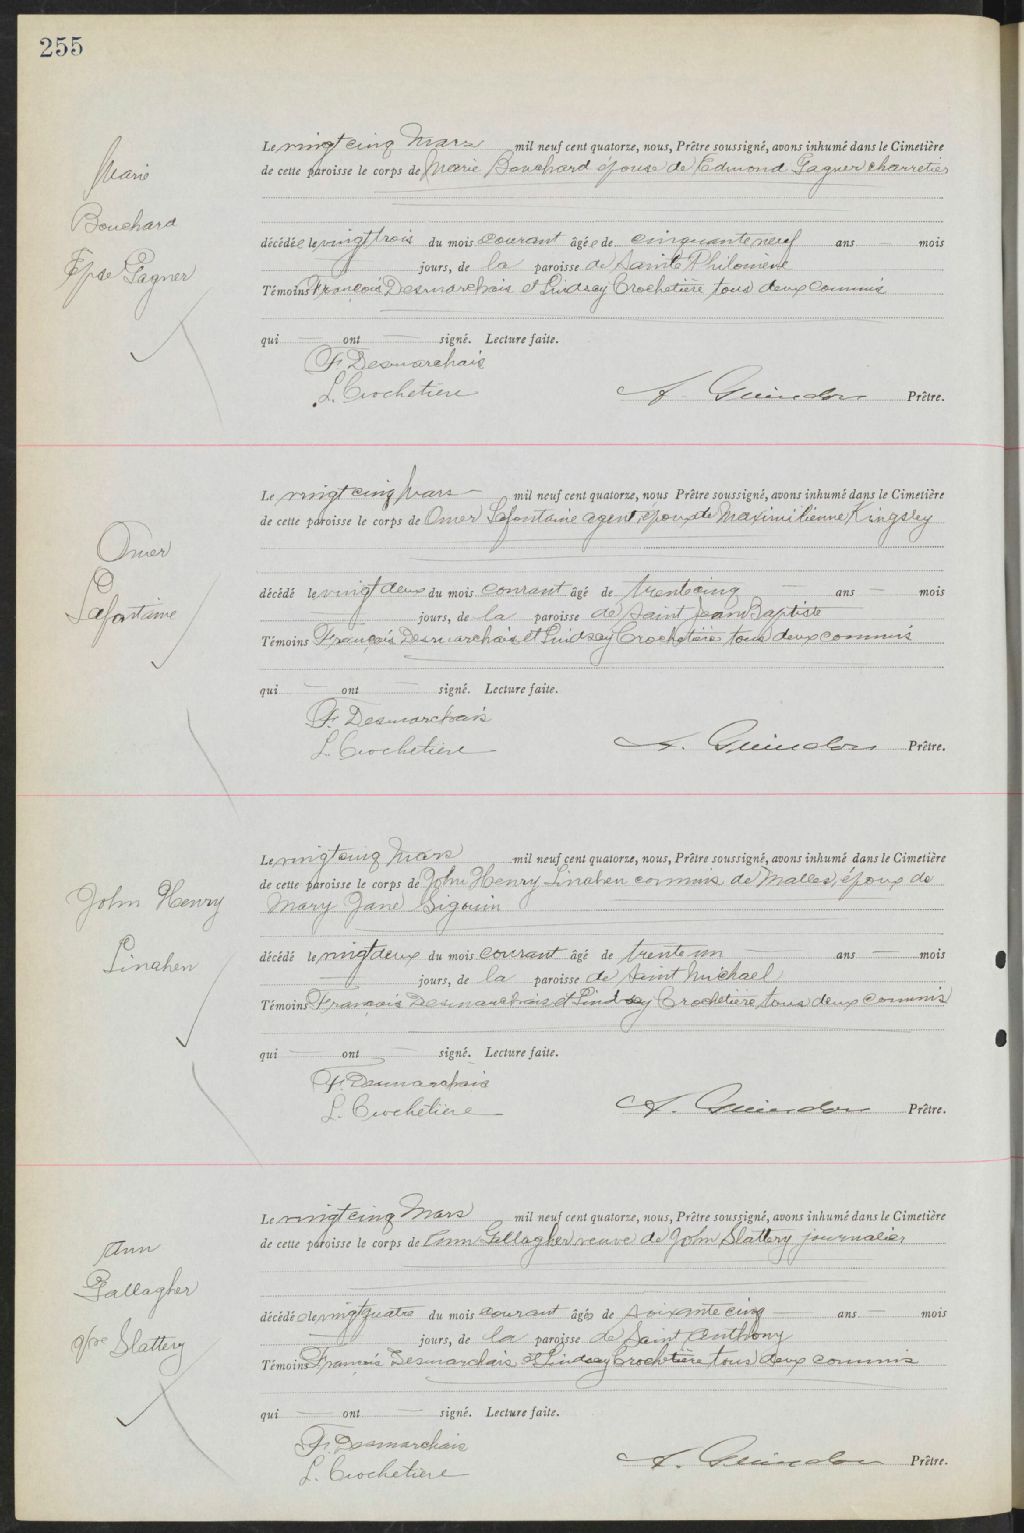 255
Marie
Bouchard
Epse Gagner
Le vingt cinq Mars mil neuf cent quatorze, nous, Prêtre soussigné, avons inhumé dans le Cimetière
de cette paroisse le corps de Marie Bouchard épouse de Edmond Gagner charretier
décédée le vingt trois du mois courant âgée de cinquante neuf ans — mois
jours, de la paroisse de Sainte Philomène
Témoins François Desmarchais et Lindsay Crochetière tous deux commis
qui — ont — signé. Lecture faite.
F. Desmarchais
L. Crochetiere
A. Guindon Prêtre.
Omer
Lafontaine
Le vingt cinq Mars — mil neuf cent quatorze, nous Prêtre soussigné, avons inhumé dans le Cimetière
de cette paroisse le corps de Omer Lafontaine agent, époux de Maximilienne Kingsley
décédé le vingt deux du mois courant âgé de trente cinq — ans — mois
jours, de la paroisse de Saint Jean Baptiste
Témoins François Desmarchais et Lindsay Crochetière tous deux commis
qui — ont — signé. Lecture faite.
F. Desmarchais
L. Crochetiere
A. Guindon Prêtre.
John Henry
Linahen
Le vingt cinq Mars mil neuf cent quatorze, nous, Prêtre soussigné, avons inhumé dans le Cimetière
de cette paroisse le corps de John Henry Linahen commis de Malles, époux de
Mary Jane Sigouin
décédé le vingt deux du mois courant âgé de trente un — ans — mois
jours, de la paroisse de Saint Michael
Témoins François Desmarchais et Lindsay Crochetière tous deux commis
qui — ont — signé. Lecture faite.
F. Desmarchais
L. Crochetiere
A. Guindon Prêtre.
Ann
Gallagher
Slattery
Le vingt cinq Mars mil neuf cent quatorze, nous, Prêtre soussigné, avons inhumé dans le Cimetière
de cette paroisse le corps de Ann Gallagher veuve de John Slattery journalier
décédée le vingt quatre du mois courant âgée de soixante cinq — ans — mois
jours, de la paroisse de Saint Anthony
Témoins François Desmarchais et Lindsay Crochetière tous deux commis
qui — ont — signé. Lecture faite.
F. Desmarchais
L. Crochetiere
A. Guindon Prêtre.